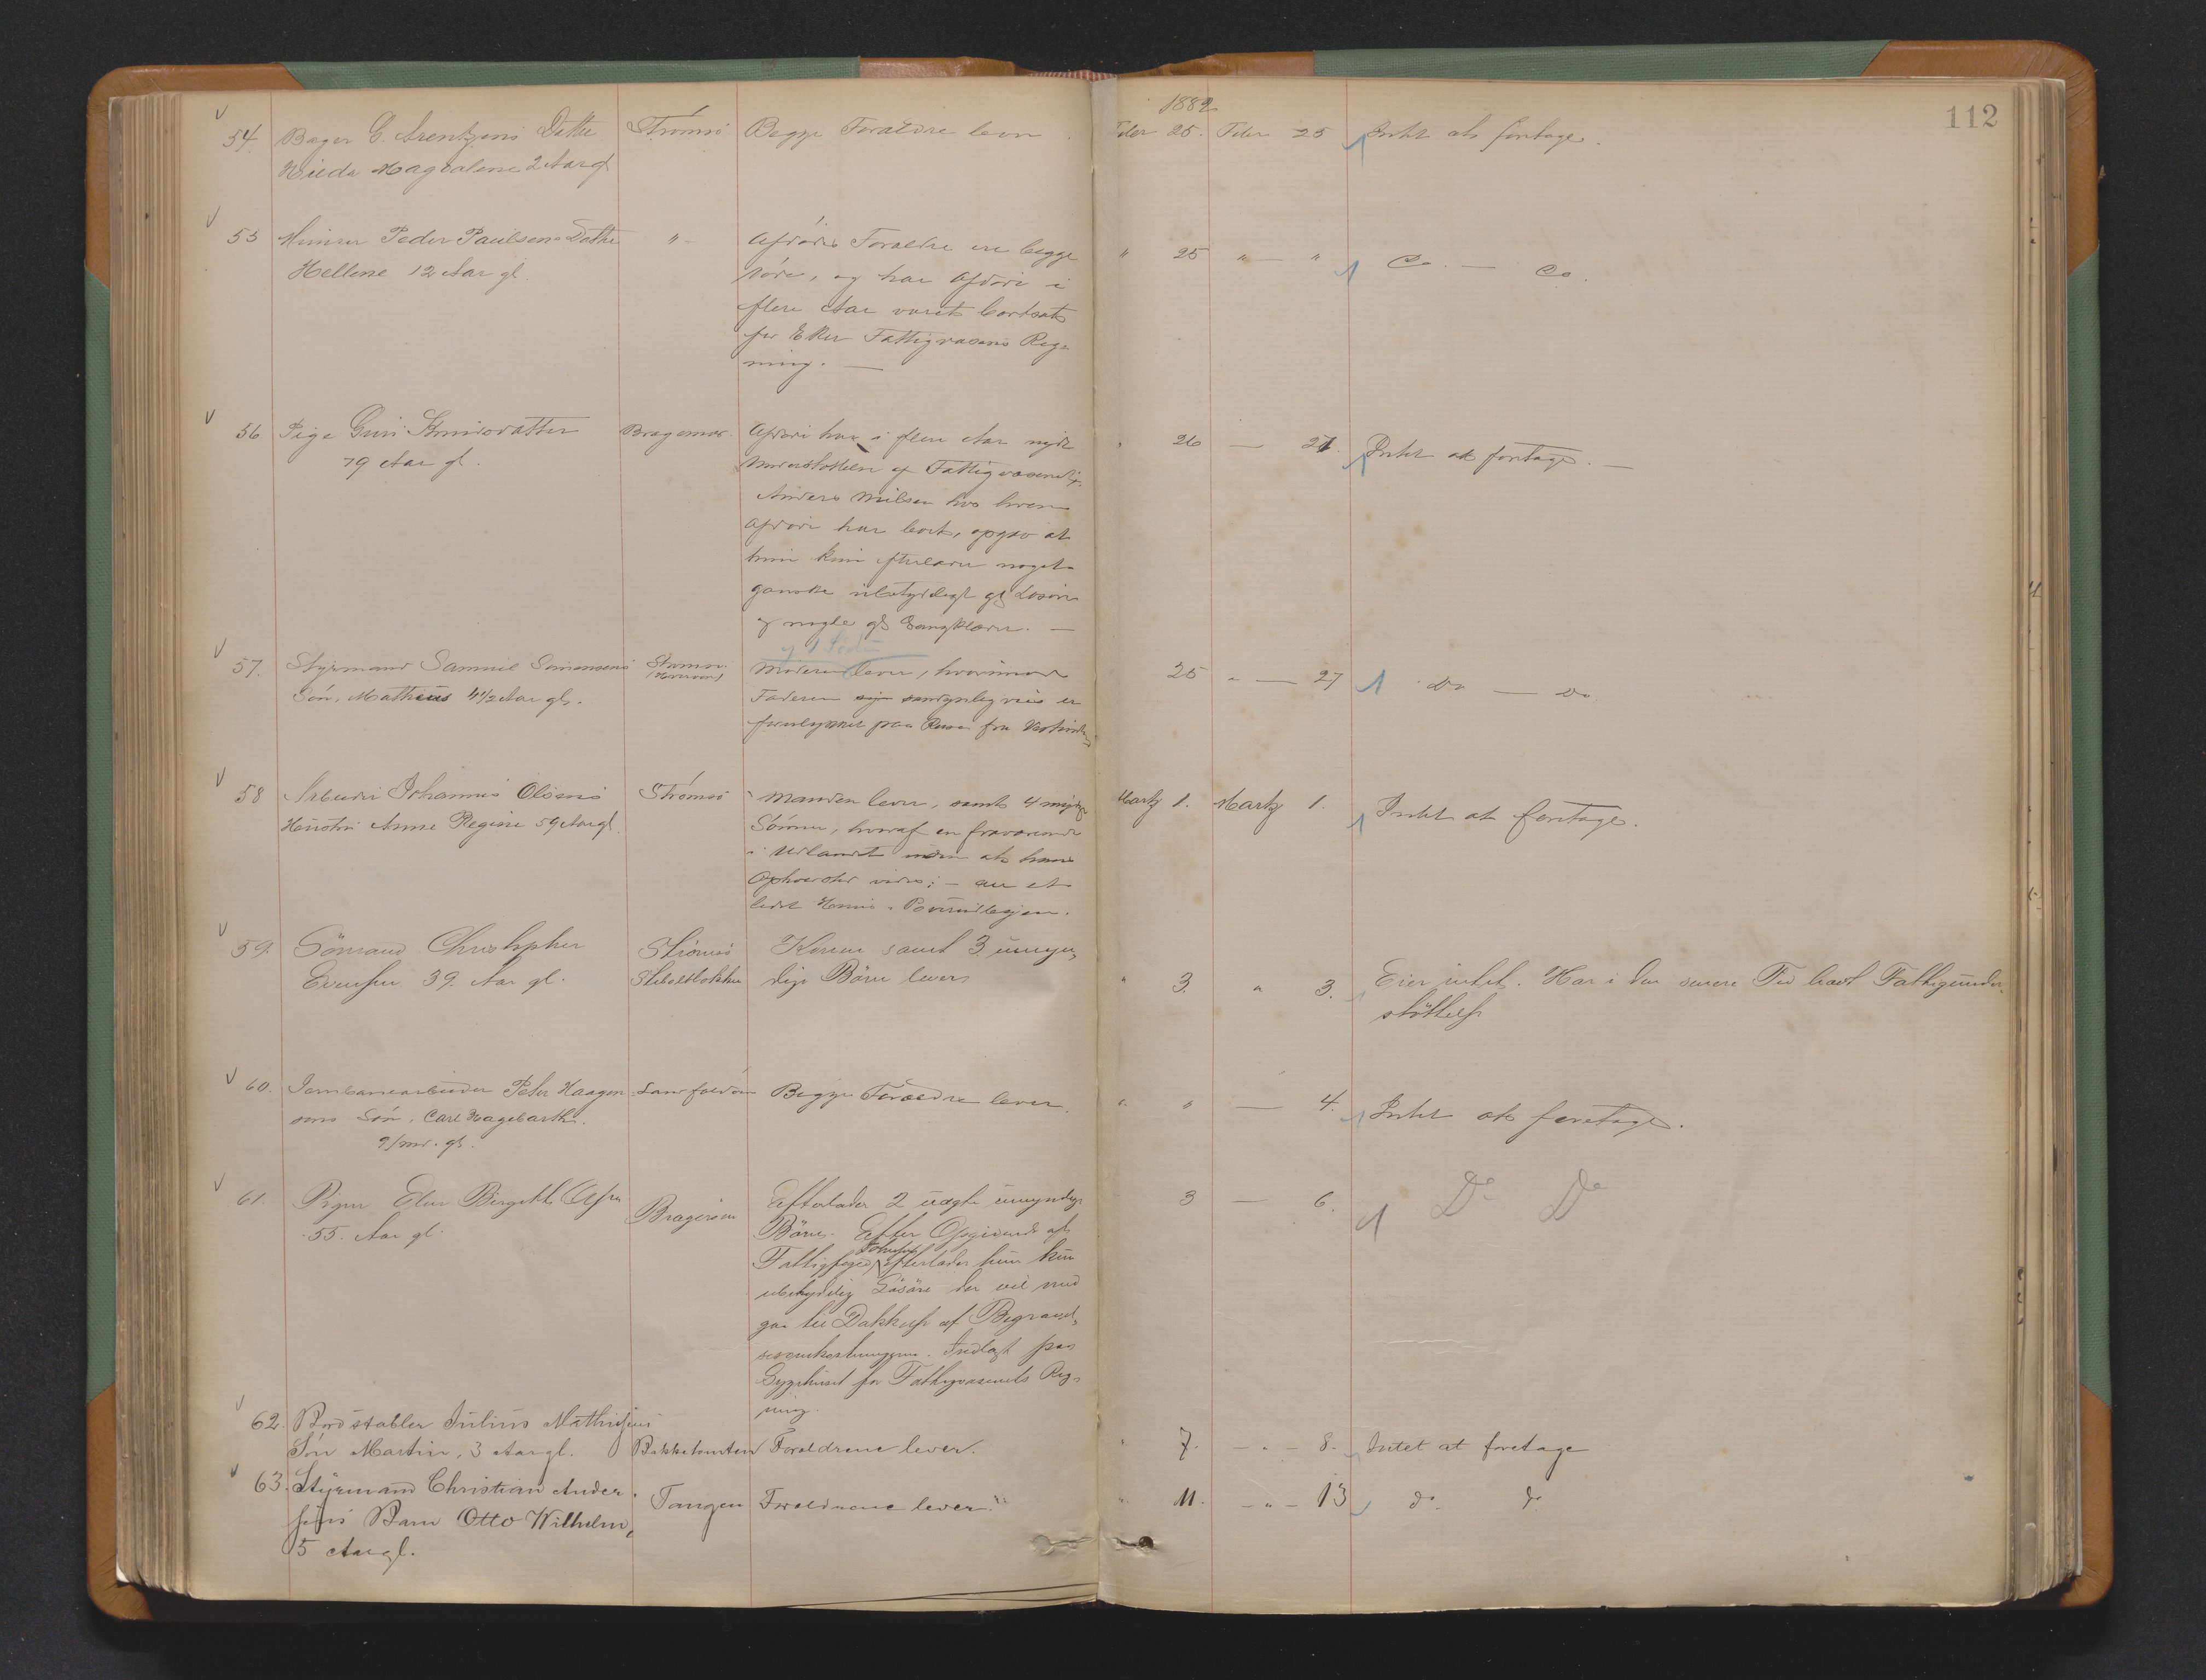 1882
112
54. Bager G. Arentzens Datter Strømsø Begge Forældre lever. Feber 25. Feber 25 Intet at foretage.
Magdalene 2 Aar gl.
55 Peder Paulsens Datter " Afdødes Forældre ere begge " 25 " — " Do. — Do.
Hellene 12 Aar gl. døde, og har Afdøde i
flere Aar været bortsat
for Eker Fattigvæsens Reg-
ning. —
56 Pige Guri Bragernæs Afdøde har i flere Aar nydt " 26 — 27. Intet at foretage. —
79 Aar gl. Understøttelse af Fattigvæsenet.
Anders Nilsen hos hvem
Afdøde har boet, opgav at
hun kun efterlader noget
ganske ubetydeligt gl Løsøre
og nogle gl Gangklæder. —
57. Styrmand Samuel Simensens Moderen lever, hvorimod 25 " — 27 Do — Do
Søn, Mathias 4 1/2 Aar gl. Faderen sandsynligviis er
forulykket paa Reise fra
58 Arbeider Johannes Olsens Strømsø Manden lever, samt 4 Martz 1. Martz 1. Intet at foretage.
Hustru Anne Regine 59 Aar gl. Sønner, hvoraf en fraværende
i Udlandet uden at hans
Opholdsted vides; —
59. Sømand Christopher Strømsø Konen samt 3 umyn- " 3. " 3. Eier intet. Har i den senere Tid havt Fattigunder-
Evensen 39. Aar gl. dige Børn lever støttelse
60. Jernbanearbeider Peter Haagen- Begge Forældre lever. " " — 4. Intet at foretage.
sens Søn, Carl
9/md. gl.
61. Pigen Elen Birgitte Bragernæs Efterlader 2 uægte umyndige 3 — 6. Do Do
55. Aar gl. Børn. Efter Opgivende af
Fattigfoged efterlader hun kun
ubetydelig Løsøre der vil med
gaa til Dækkelse af Begravel-
sesomkostningerne. Indlagt paa
Sygehuset for Fattigvæsenets Reg-
ning.
62. Bordstabler Julius Mathisens
Søn Martin, 3 Aar gl. Bakketomten Forældrene lever. " 7. — " — 8. Intet at foretage
63. Styrmand Christian Ander- Tangen Forældrene lever. " 11. — " — 13 do. do.
sens Barn Otto Wilhelm,
5 Aar gl.